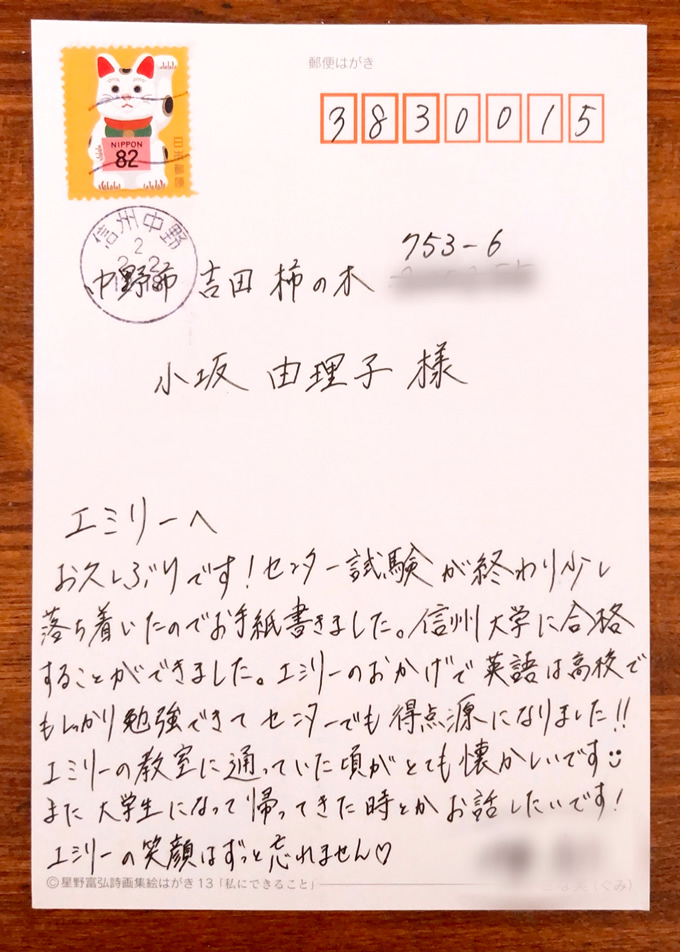 郵便はがき
3830015
NIPPON
82
日本郵便
信州中野
2
753-6
中野市 吉田 柿の木
小坂 由理子 様
エミリーへ
お久しぶりです!センター試験が終わり少し
落ち着いたのでお手紙書きました。信州大学に合格
することができました。エミリーのおかげで英語は高校で
もしっかり勉強できてセンターでも得点源になりました!!
エミリーの教室に通っていた頃がとても懐かしいです
また大学生になって帰ってきた時とかお話したいです!
エミリーの笑顔はずっと忘れません♡
©星野富弘詩画集絵はがき13「私にできること」